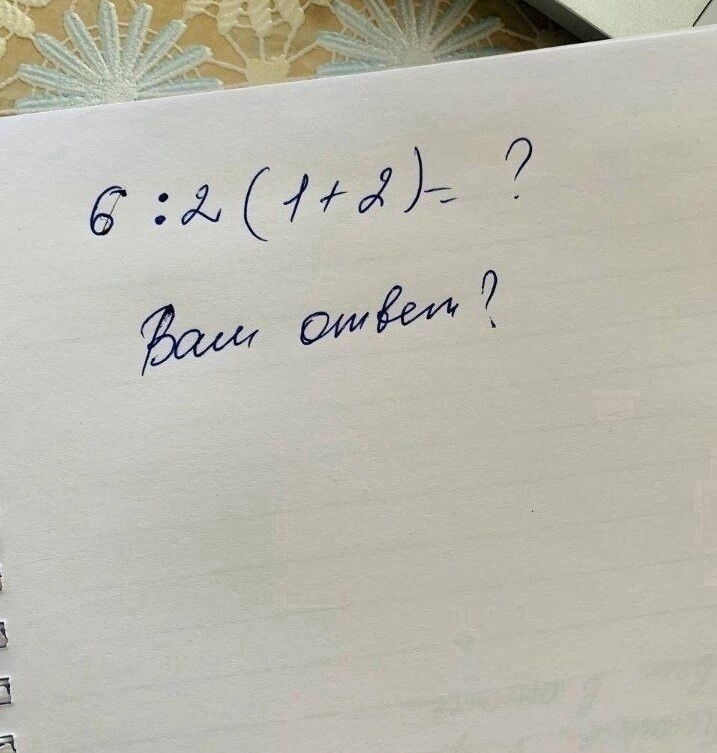 6 : 2 ( 1 + 2 ) = ?
Ваш ответ?